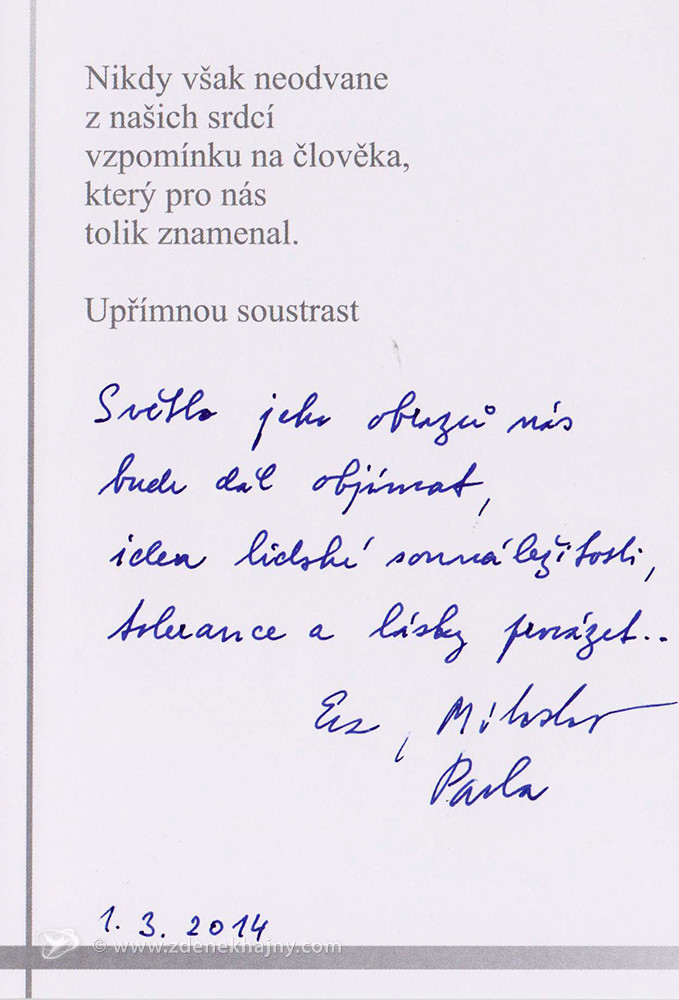 Nikdy však neodvane
z našich srdcí
vzpomínku na člověka,
který pro nás
tolik znamenal.
Upřímnou soustrast
Světlo jeho obrazů nás
bude dál objímat,
idea lidské sounáležitosti,
tolerance a lásky provázet..
Eva, Miloslav
Pavla
1. 3. 2014
© www.zdenekhajny.com